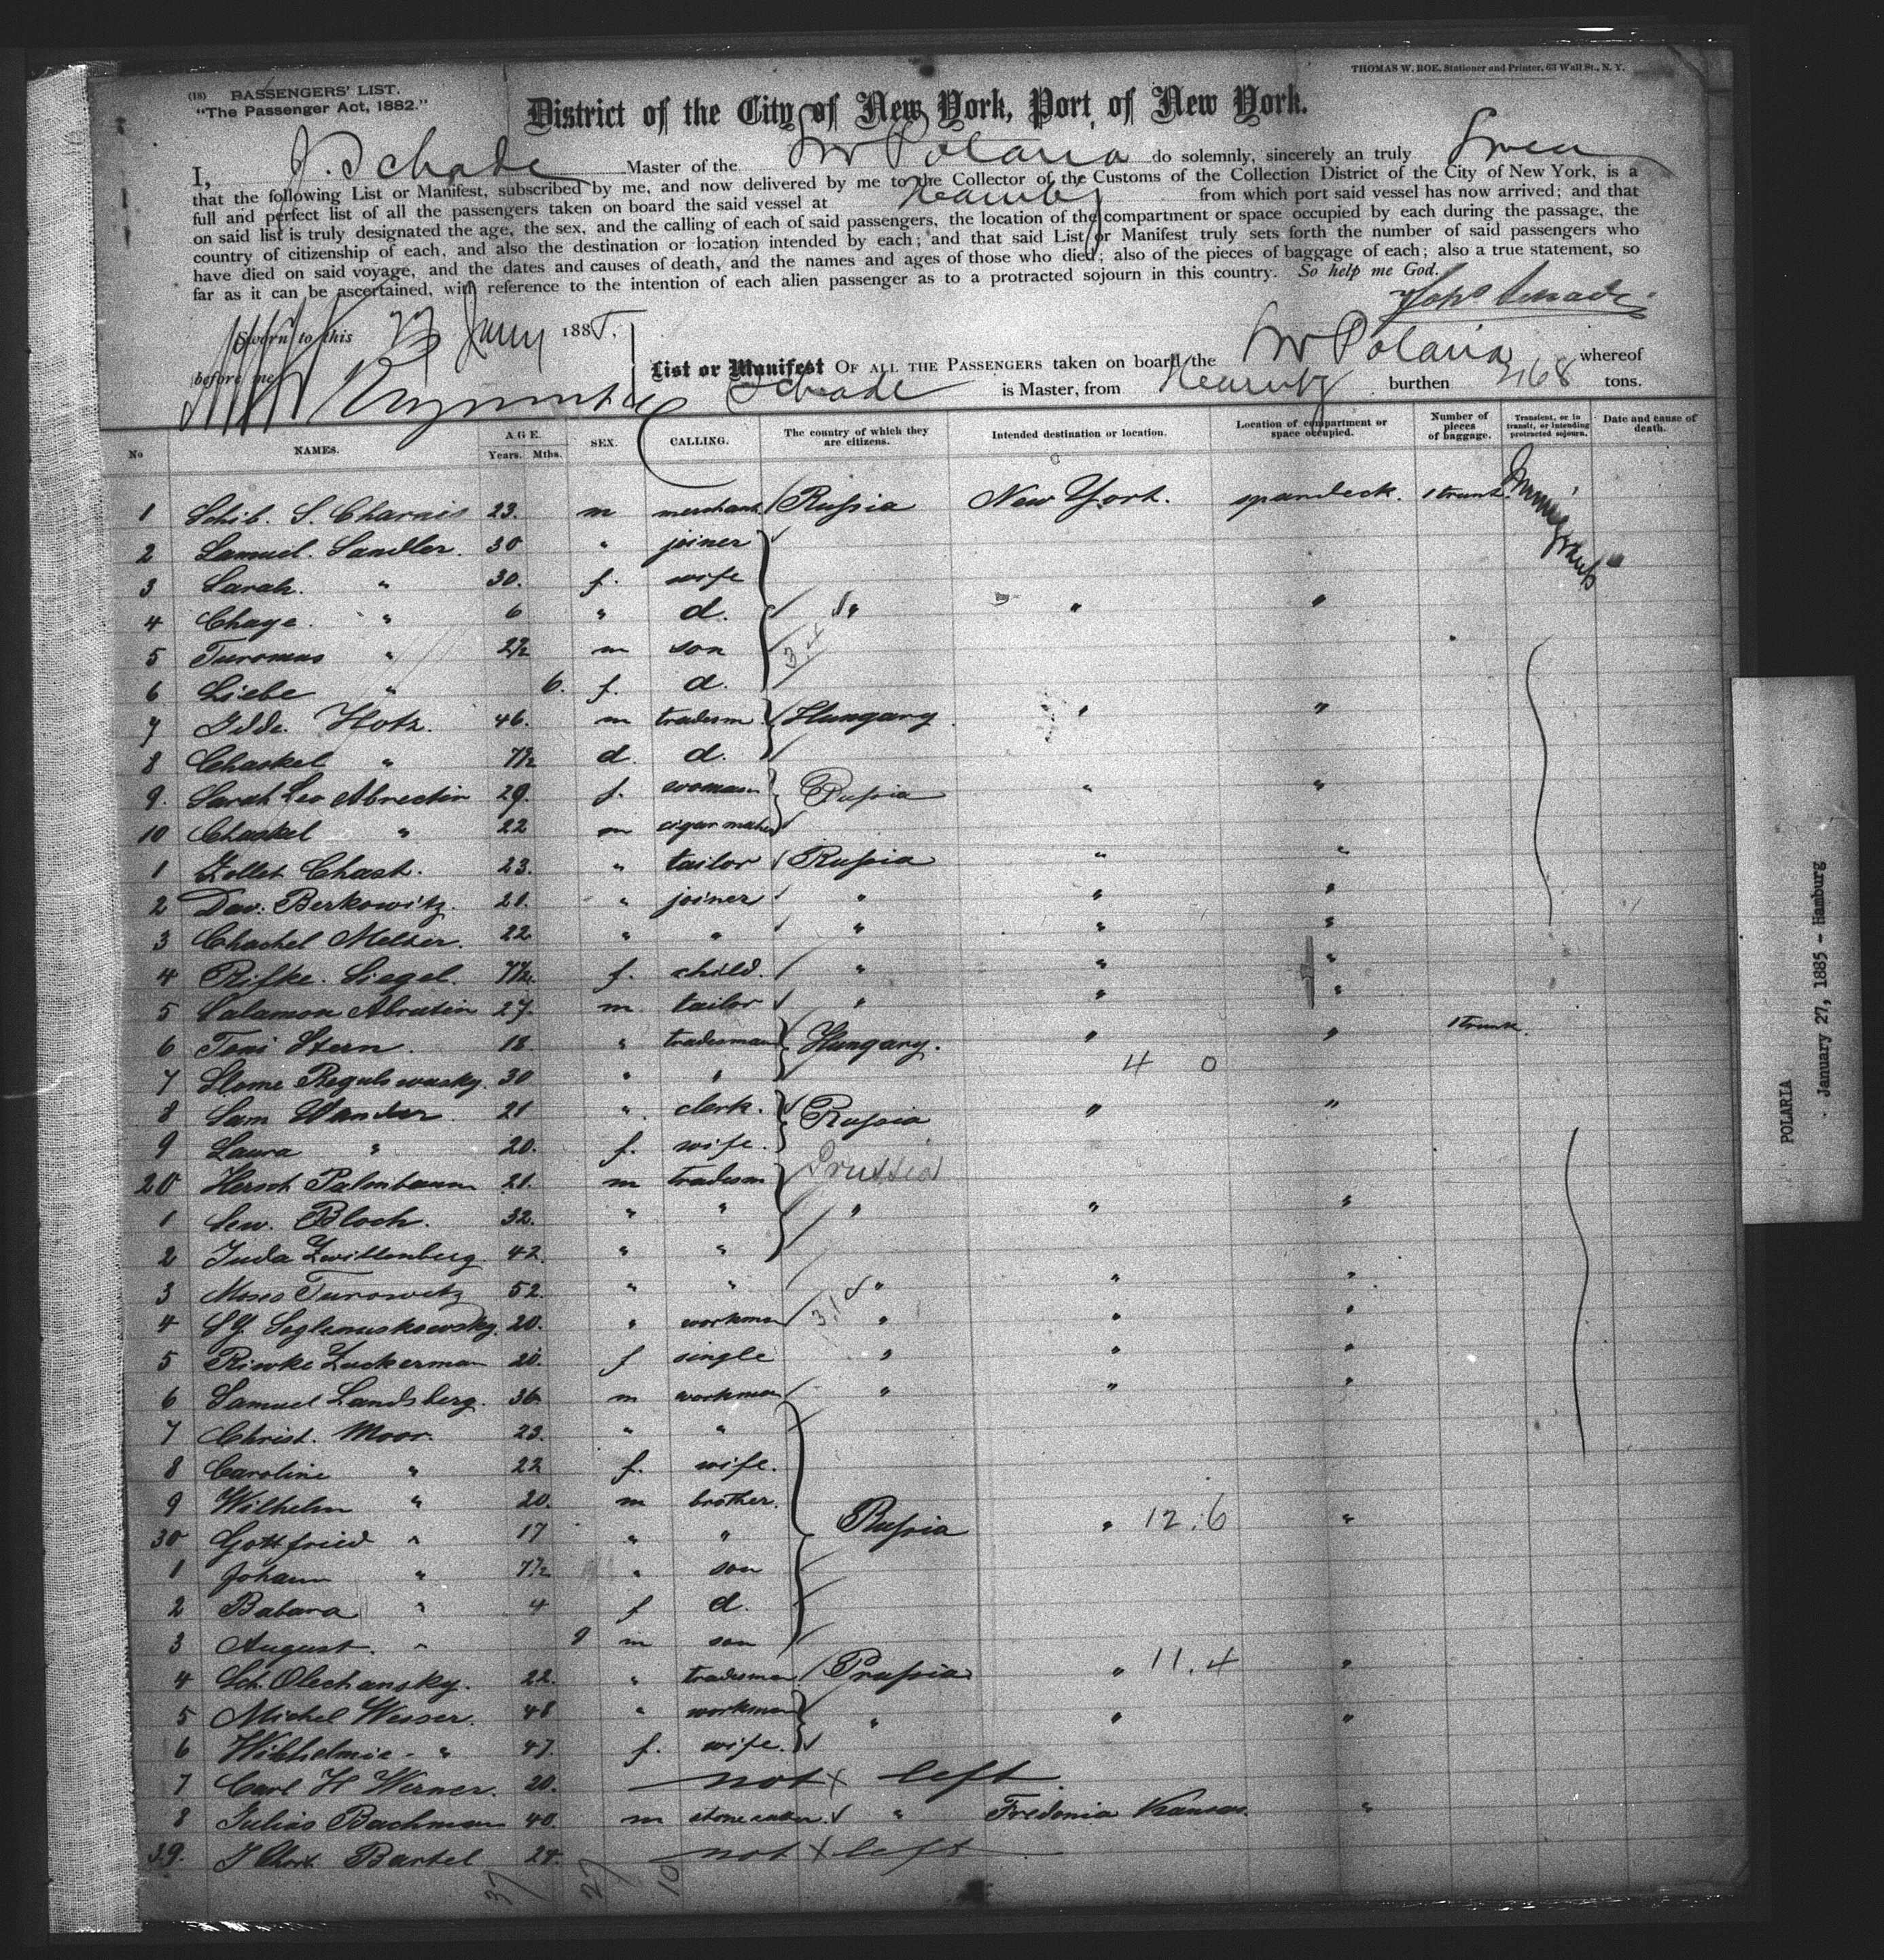 (18) PASSENGERS' LIST.
"The Passenger Act, 1882."
THOMAS W. ROE, Stationer and Printer, 63 Wall St., N. Y.
District of the City of New York, Port of New York.
I, J. Schade Master of the Polaria do solemnly, sincerely an truly Swear
that the following List or Manifest, subscribed by me, and now delivered by me to the Collector of the Customs of the Collection District of the City of New York, is a
full and perfect list of all the passengers taken on board the said vessel at from which port said vessel has now arrived; and that
on said list is truly designated the age, the sex, and the calling of each of said passengers, the location of the compartment or space occupied by each during the passage, the
country of citizenship of each, and also the destination or location intended by each; and that said List or Manifest truly sets forth the number of said passengers who
have died on said voyage, and the dates and causes of death, and the names and ages of those who died; also of the pieces of baggage of each; also a true statement, so
far as it can be ascertained, with reference to the intention of each alien passenger as to a protracted sojourn in this country. So help me God.
Schade
Sworn to this 1885.
before me
List or Manifest OF ALL THE PASSENGERS taken on board the Polaria whereof
Schade is Master, from burthen 3168 tons.
No NAMES. AGE. Years. Mths. SEX. CALLING. The country of which they are citizens. Intended destination or location. Location of compartment or space occupied. Number of pieces of baggage. Transient, or in transit, or intending protracted sojourn. Date and cause of death.
1 Schil. S. Charnis 23. m merchant Russia New York. spardeck. 1 trunk
2 Samuel. Sandler. 30 " joiner
3 Sarah. " 30. f. wife
4 Chaye. " 6 " d. " " "
5 " 2½ m son
6 Liebe " 6. f. d.
7 Hotz. 46. m tradesm Hungary " "
8 Chaskel " 7½ d. d.
9. Sarah Lea Abrectin 29. f. woman Russia " "
10 Chaskel " 22 m cigar maker
1 Zollet Chast. 23. " tailor Russia " "
2 Dav: Berkowitz. 21. " joiner " " "
3 Chachel Melzer. 22. " " " " "
4 Rifke. Siegel. 7½. f. child. " " "
5 Salamon Abratin 27. m. tailor " " "
6 Toni Stern. 18. " tradesman Hungary. " " 1 trunk.
7 30 " " 4 0
8 Sam 21 " clerk. Russia " "
9 Laura " 20. f. wife.
20 Hersch Palmbaum 21. m tradesm Prussia
1 Lew. Bloch. 32. " " " " "
2 Juda Zwittenberg 42. " "
3 Moses Turowitz 52. " " " " "
4 20. " workman " " "
5 Riwke Zuckerman 20. f single " " "
6 Samuel Landsberg. 36. m workman " " "
7 Christ. Moor. 23. " "
8 Caroline " 22 f. wife.
9 Wilhelm " 20. m brother.
30 Gottfried " 17 " " Russia " 12.6 "
1 Johann " 7½ " son
2 Babara " 4 f d.
3 August. " 9 m son
4 Sch. Olechansky. 22. " tradesman Prussia " 11.4 "
5 Michel Wesser. 48 " workman " " "
6 Wilhelmie " 47. f. wife.
7 Carl H Werner. 20. not x left.
8 Julius Bachman 40. m stone cutter. " Fredonia Kansas. "
39. Bartel 24. not x left
37 27 10
POLARIA
January 27, 1885 - Hamburg